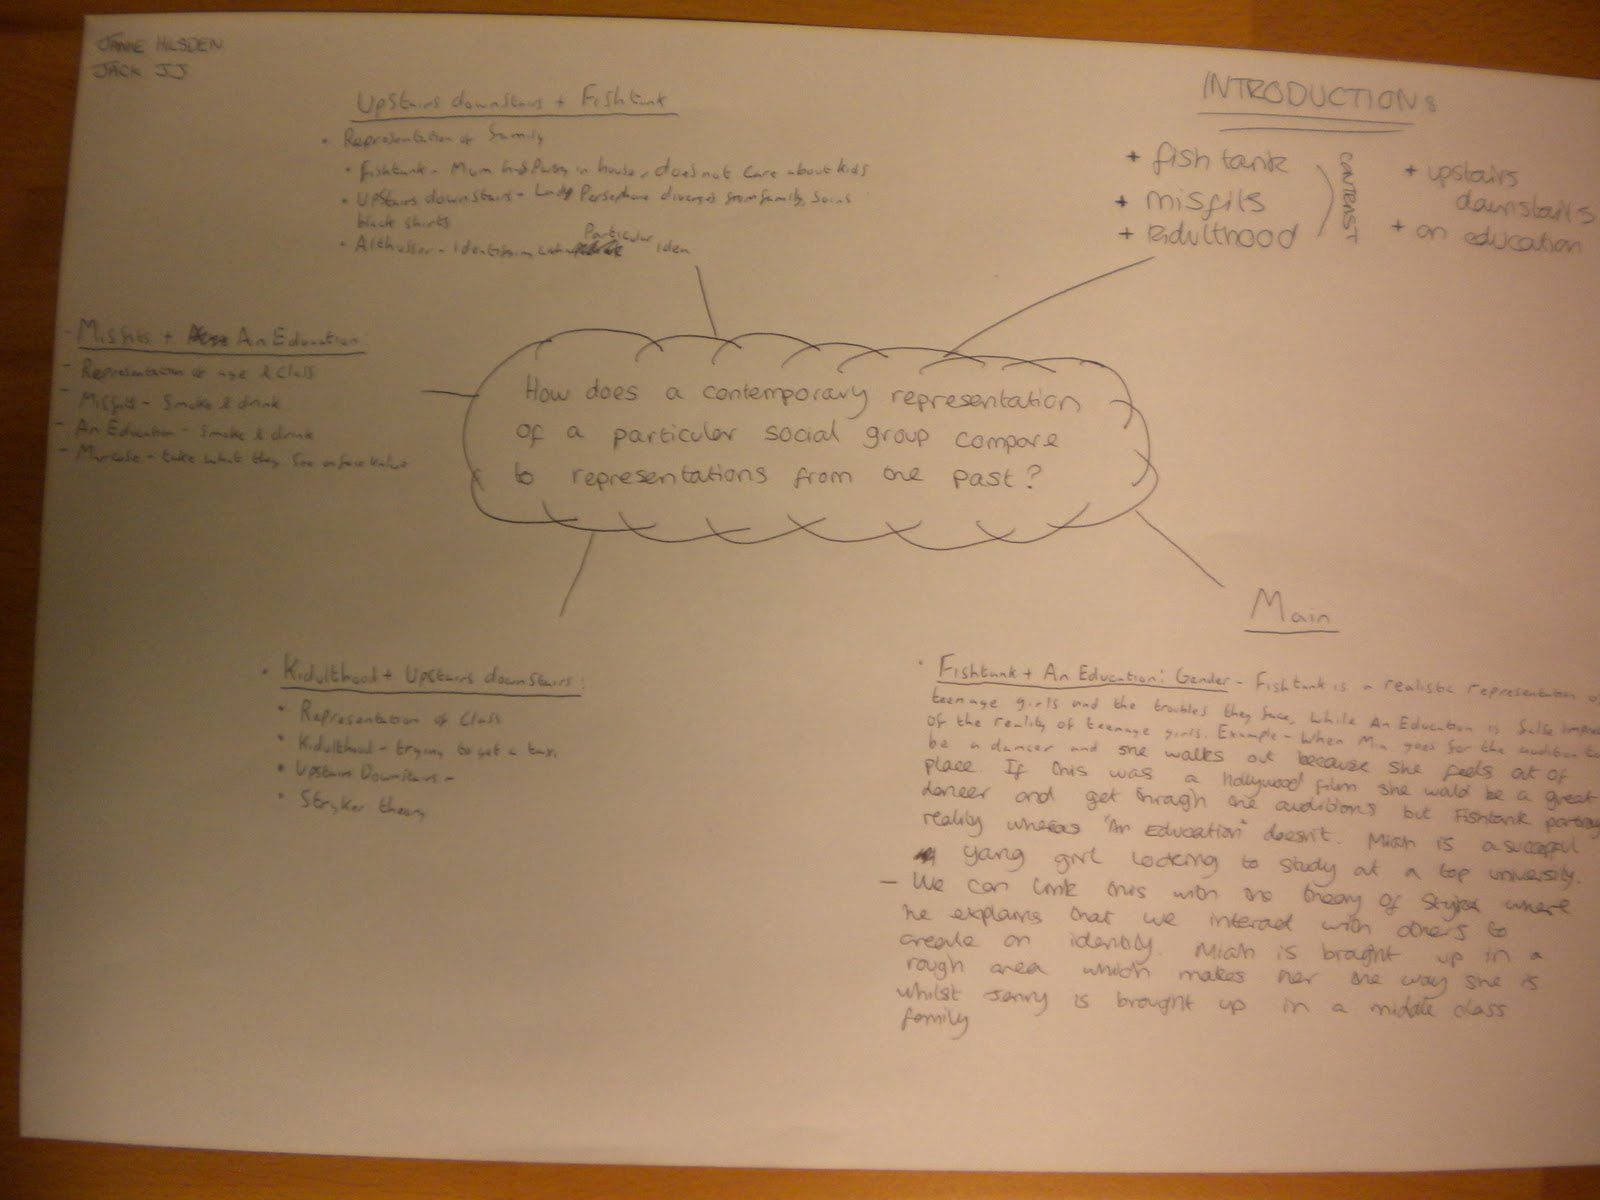 JAMIE HILSDEN
JACK JJ
Upstairs downstairs + Fishtank
• Representation of family
• Fishtank - Mum has Party in house, does not care about kids
• Upstairs downstairs - Lady Persephone diverges from family, joins
black shirts
• Althusser - Identify in Particular iden
INTRODUCTION:
+ fish tank
+ misfits
+ kidulthood
CONTRAST
+ upstairs
downstails
+ an education
- Misfits + An Education
- Representation of age & Class
- Misfits - Smoke & drink
- An Education - Smoke & drink
- Marcuse - take what they see on face value
How does a contemporary representation
of a particular social group compare
to representations from the past?
• Kidulthood + Upstairs downstairs:
• Representation of Class
• Kidulthood - trying to get a taxi
• Upstairs Downstairs -
• Stryker theory
Main
• Fishtank + An Education: Gender - Fishtank is a realistic representation
teenage girls and the troubles they face, while An Education is false
of the reality of teenage girls. Example - When Mia goes for the audition to
be a dancer and she walks out because she feels out of
place. If this was a Hollywood film she wald be a great
dancer and get through the auditions but Fishtank
reality whereas "An Education" doesn't. Miah is a
yang girl looking to study at a top university.
- We can link this with the theory of where
he explains that we interact with others to
create an identity. Miah is brought up in a
rough area which makes her the way she is
whilst Jenny is brought up in a middle class
family